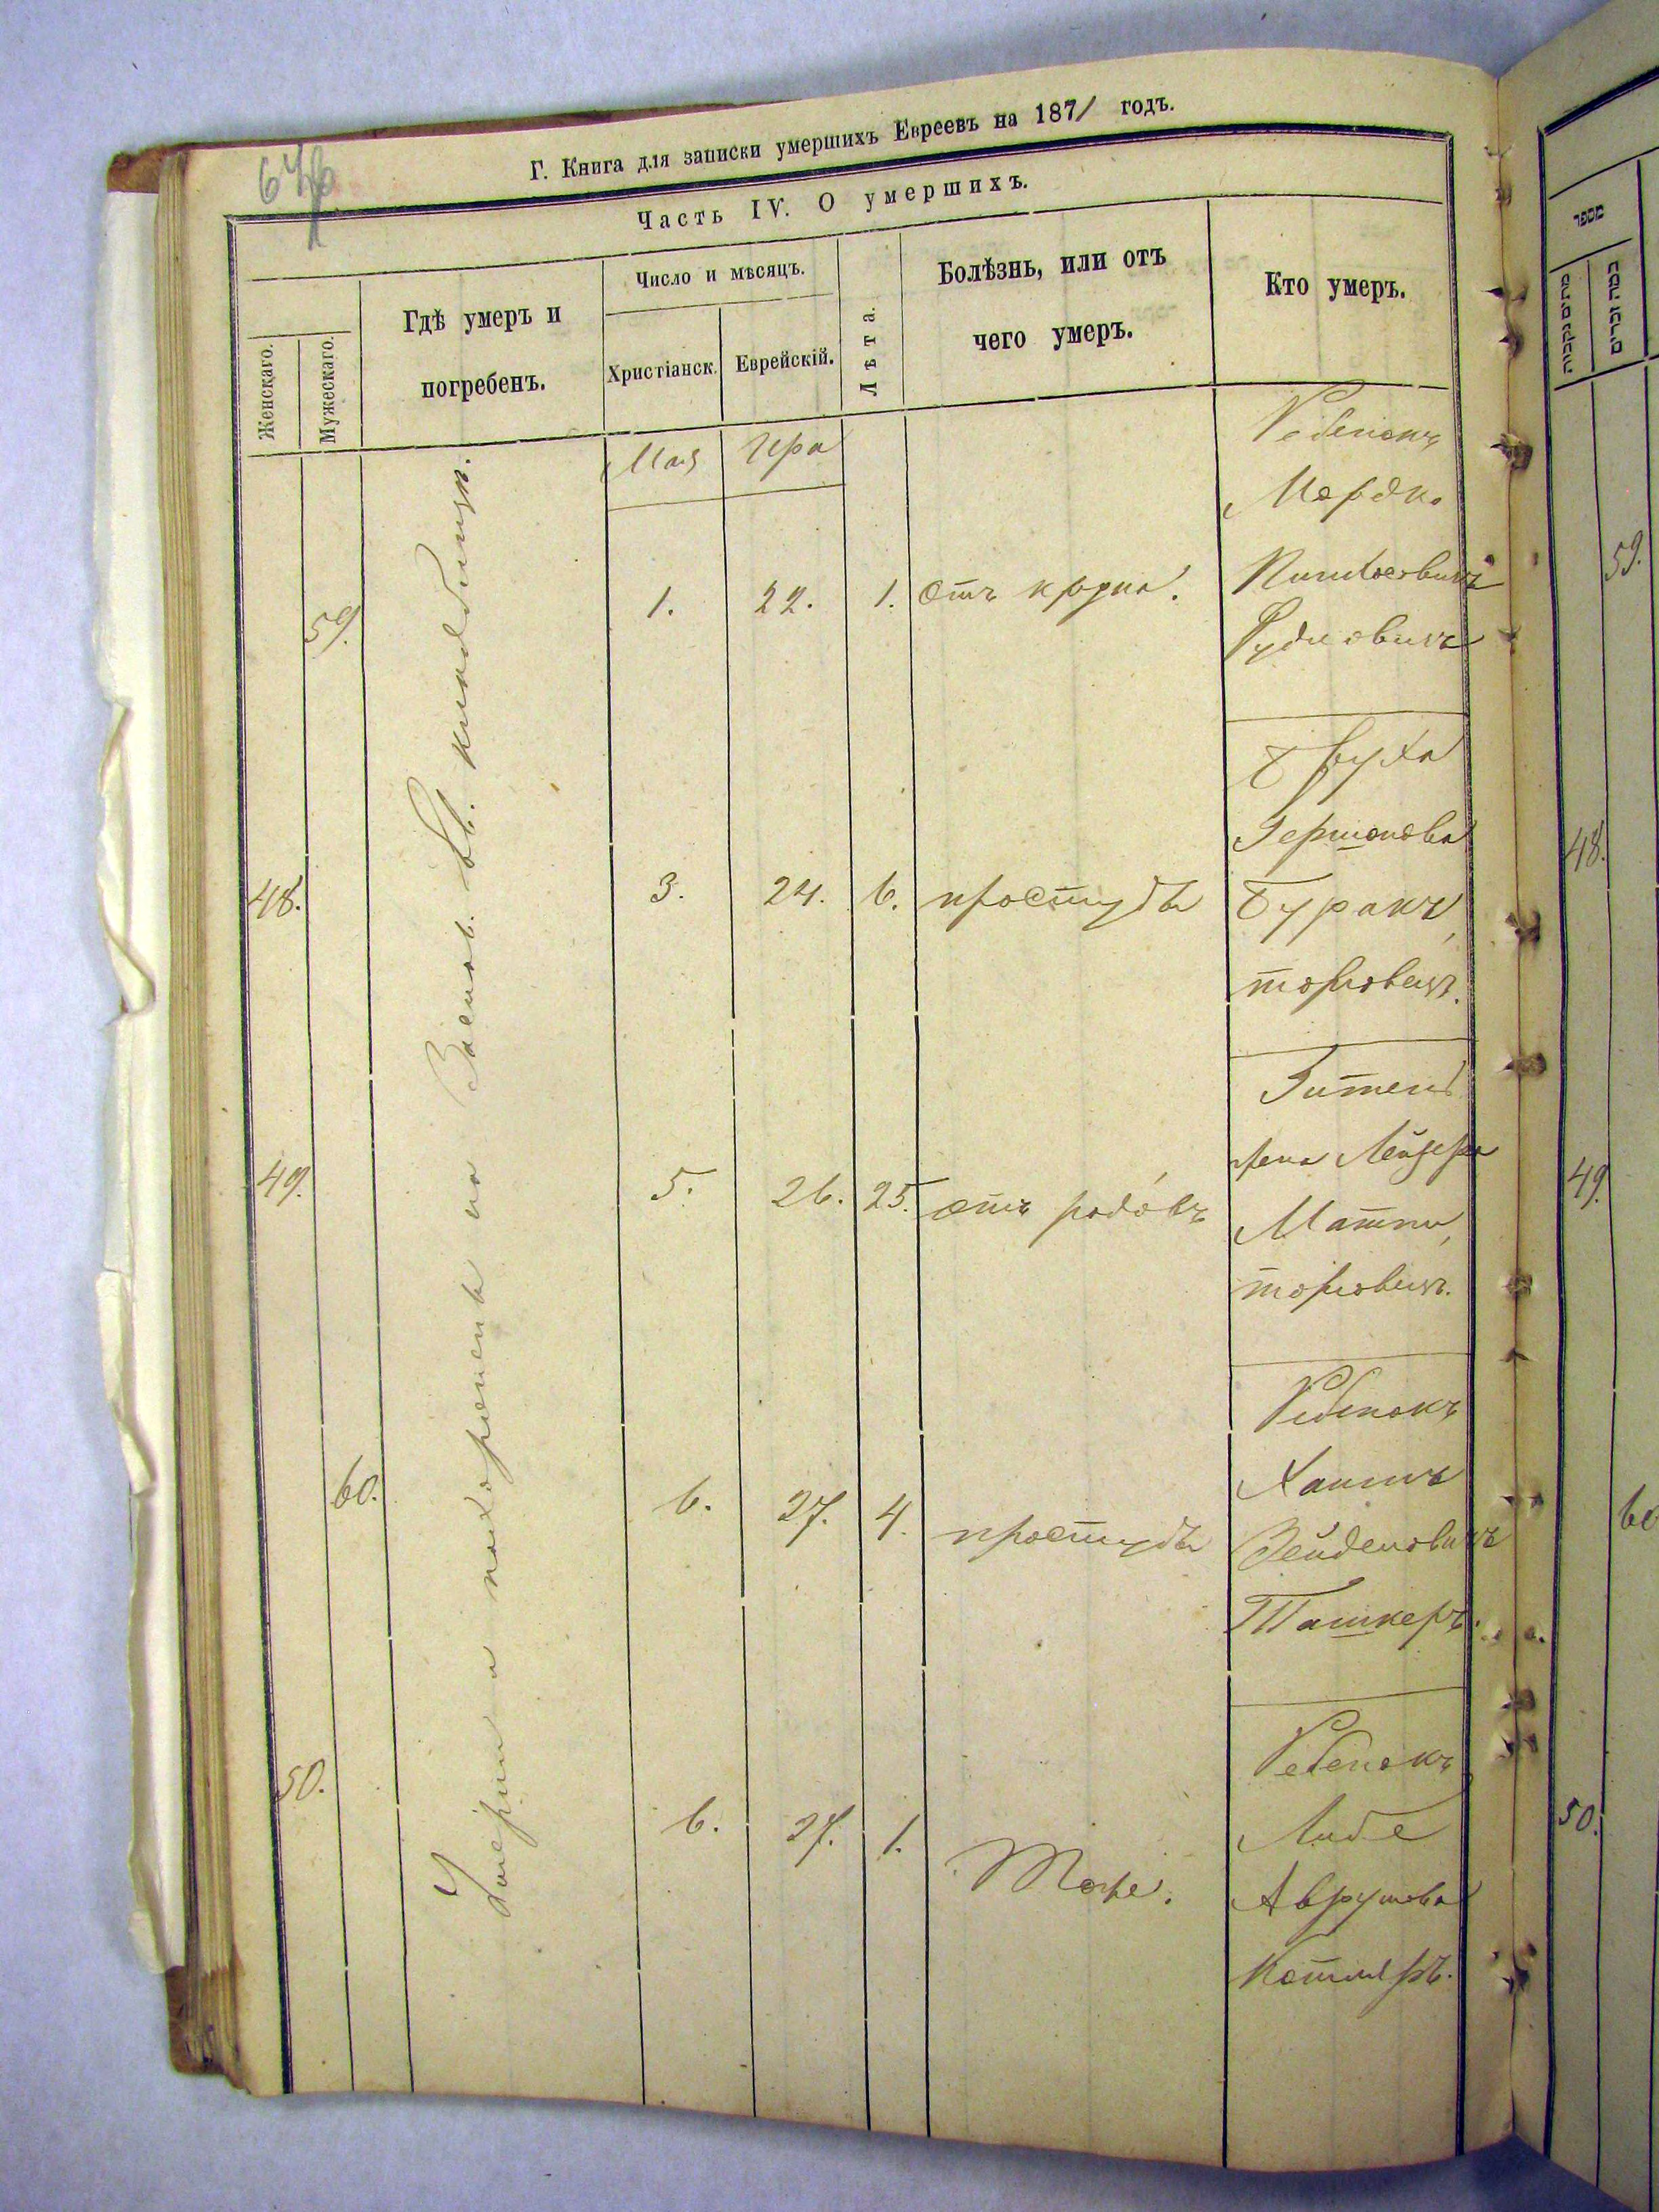 Г. Книга для записки умершихъ Евреевъ на 1871 годъ.
Часть IV. О умершихъ.
Женскаго.
Мужескаго.
Гдѣ умеръ и
погребенъ.
Число и мѣсяцъ.
Христіанск.
Еврейскій.
Лѣта.
Болѣзнь, или отъ
чего умеръ.
Кто умеръ.
Умерши и похоронены на Заслав. Ев. кладбищѣ.
Мая
Ира
59.
1.
22.
1.
отъ крупа.
Ребенокъ
Мордко
Рудмовичъ
48.
3.
24.
6.
простуды
Бруха
Гершонова
Буракъ,
торговецъ.
49.
5.
26.
25.
отъ родовъ
Гитель
жена Лейзера
торговецъ.
60.
6.
27.
4.
простуды
Ребенокъ
Хаимъ
Зейделовичъ
Ташкеръ.
50.
6.
27.
1.
Тоже.
Ребенокъ
Либе
Аврумова
Котляръ.
מספר
כמה נקבות
כמה זכרים
59.
48.
49.
60
50.